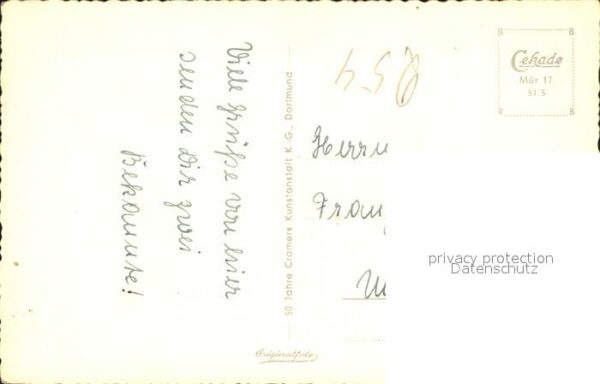 Viele Grüße von hier
senden Dir zwei
Bekannte!
50 Jahre Cramers Kunstanstalt K.G., Dortmund
Originalfoto
B B
Cekade
Mär 17
51.5
Herrn
Franz
privacy protection
Datenschutz